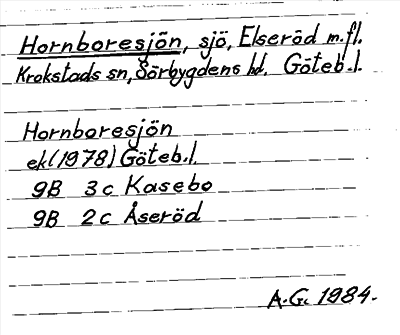 Hornboresjön, sjö, Elseröd m.fl.
Krokstads sn, Sörbygdens hd. Göteb.l.
Hornboresjön
ek(1978) Göteb.l.
9B 3c Kasebo
9B 2c Åseröd
A.G. 1984.